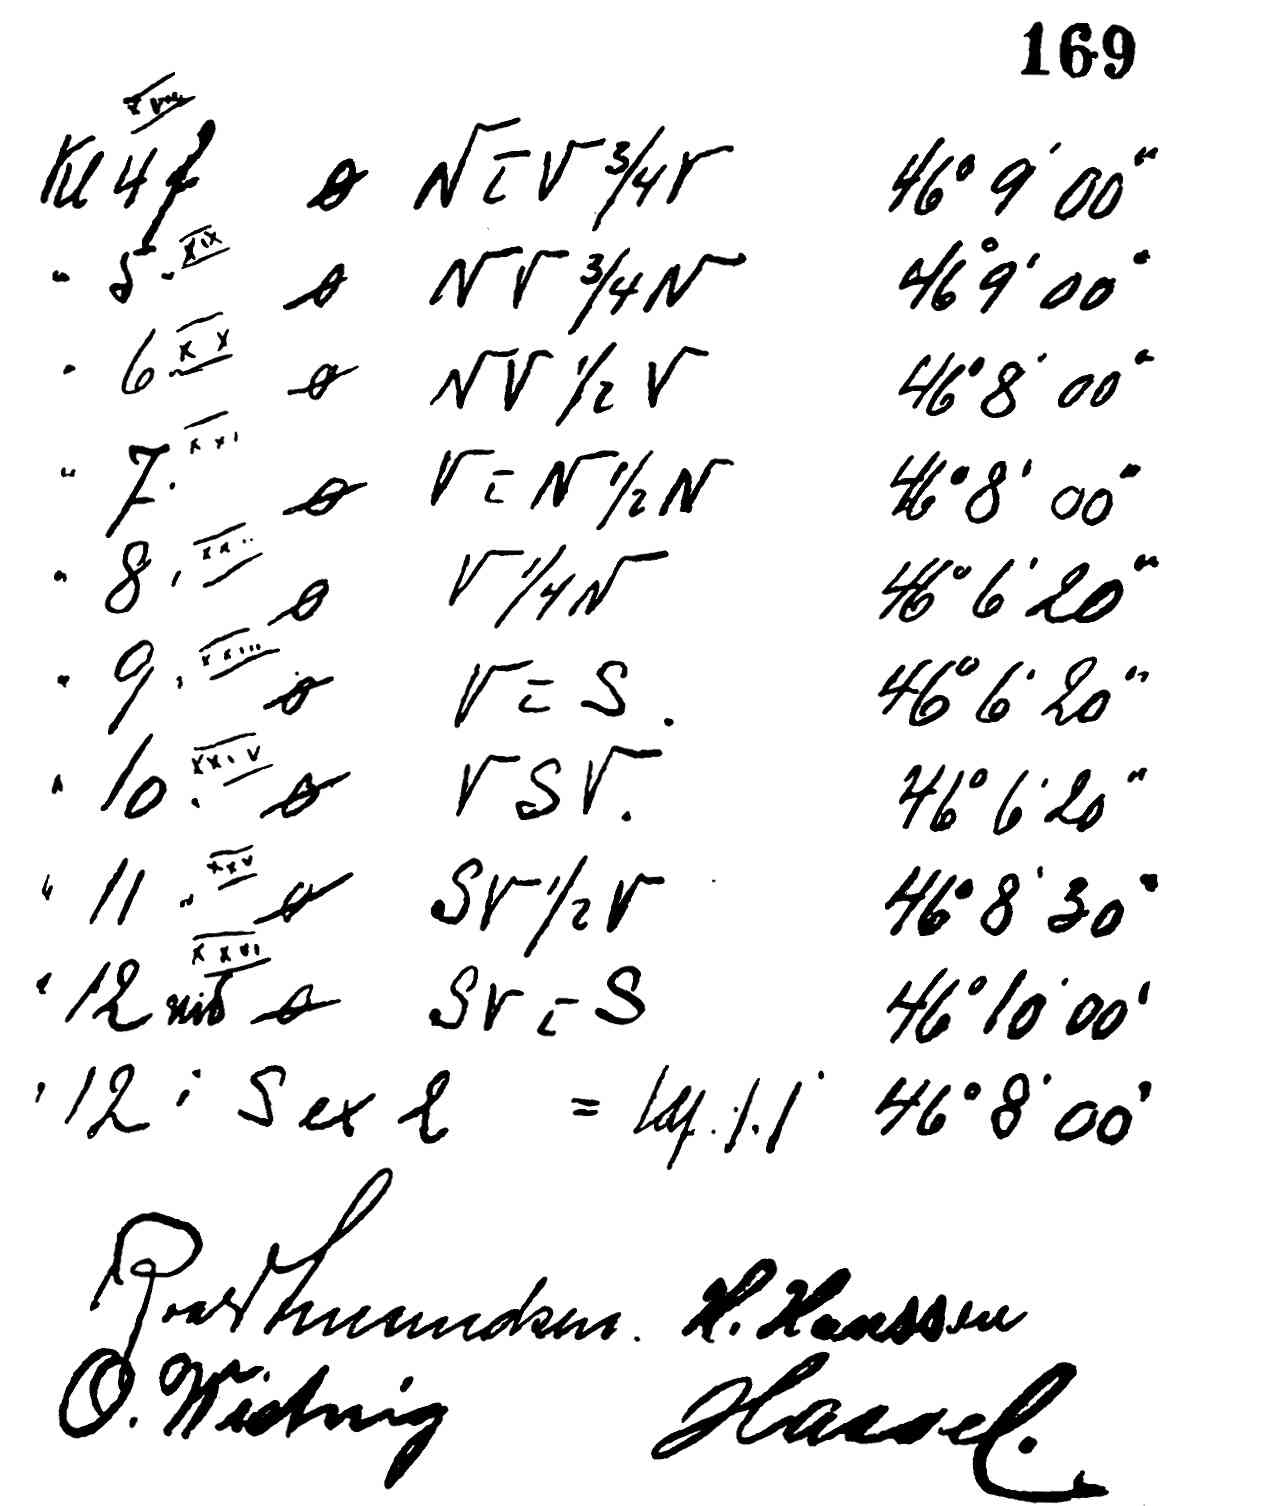 169
Kl 4 f ꝋ N t V 3/4 V 46° 9' 00"
" 5 " XIX ꝋ NV 3/4 N 46° 9' 00"
" 6 " XX ꝋ NV 1/2 V 46° 8' 00"
" 7. XXI ꝋ V t N 1/2 N 46° 8' 00"
" 8 " XXII ꝋ V 1/4 N 46° 6' 20"
" 9 " XXIII ꝋ V t S. 46° 6' 20"
" 10 " ꝋ VSV. 46° 6' 20"
" 11 " XXV ꝋ SV 1/2 V 46° 8' 30"
" 12 XXVI ꝋ SV t S 46° 10' 00"
" 12 i Sex = 46° 8' 00"
Roald Amundsen. H. Hanssen
O. Wisting Hassel.